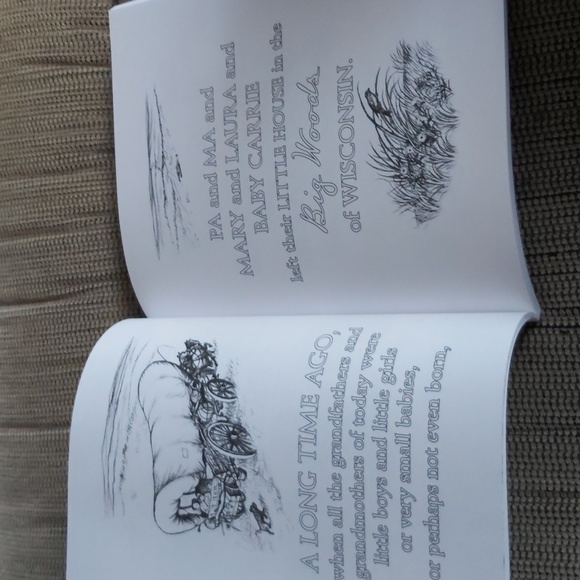 A LONG TIME AGO,
when all the grandfathers and
grandmothers of today were
little boys and little girls
or very small babies,
or perhaps not even born,
PA and MA and
MARY and LAURA and
BABY CARRIE
left their LITTLE HOUSE in the
Big Woods
of WISCONSIN.